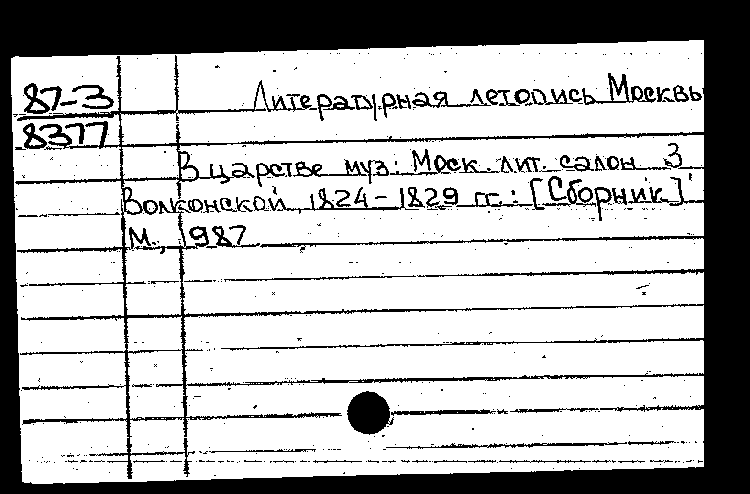 87-3
8377
Литературная летопись Москвы
В царстве муз: Моск. лит. салон З
Волконской, 1824-1829 гг.: [Сборник]
М., 1987